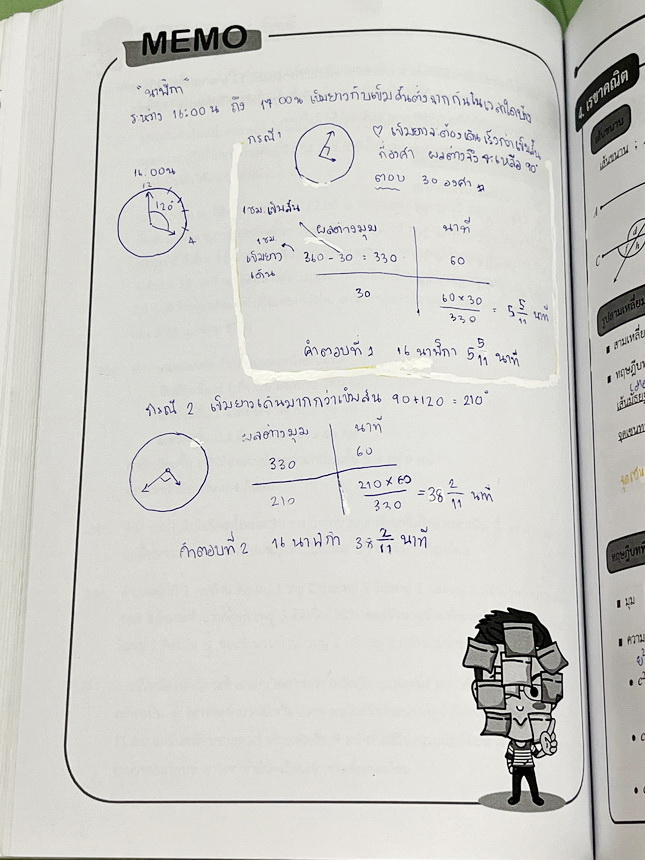 MEMO
"นาฬิกา"
ระหว่าง 16:00 น ถึง 17.00 น เข็มยาวกับเข็มสั้นตั้งฉากกันในเวลาใดบ้าง
กรณี 1
♡ เข็มยาวต้องเดินเร็วกว่าเข็มสั้น
กี่องศา ผลต่างจึงจะเหลือ 90°
ตอบ 30 องศา
16.00 น
12
120°
4
1 ชม. เข็มสั้น
ผลต่างมุม นาที
1 ชม.
เข็มยาว
เดิน
360 - 30 = 330 60
30 60×30/330 = 5 5/11 นาที
คำตอบที่ 1 16 นาฬิกา 5 5/11 นาที
กรณี 2 เข็มยาวเดินมากกว่าเข็มสั้น 90+120 = 210°
ผลต่างมุม นาที
330 60
210 210×60/330 = 38 2/11 นาที
คำตอบที่ 2 16 นาฬิกา 38 2/11 นาที
4. เรขาคณิต
เส้นขนาน
เส้นขนาน :
A
C
d
f
h
รูปสามเหลี่ยม
■ สามเหลี่
■ ทฤษฎีบท
ทฤษฎีบทพี
■ มุม
■ ความ